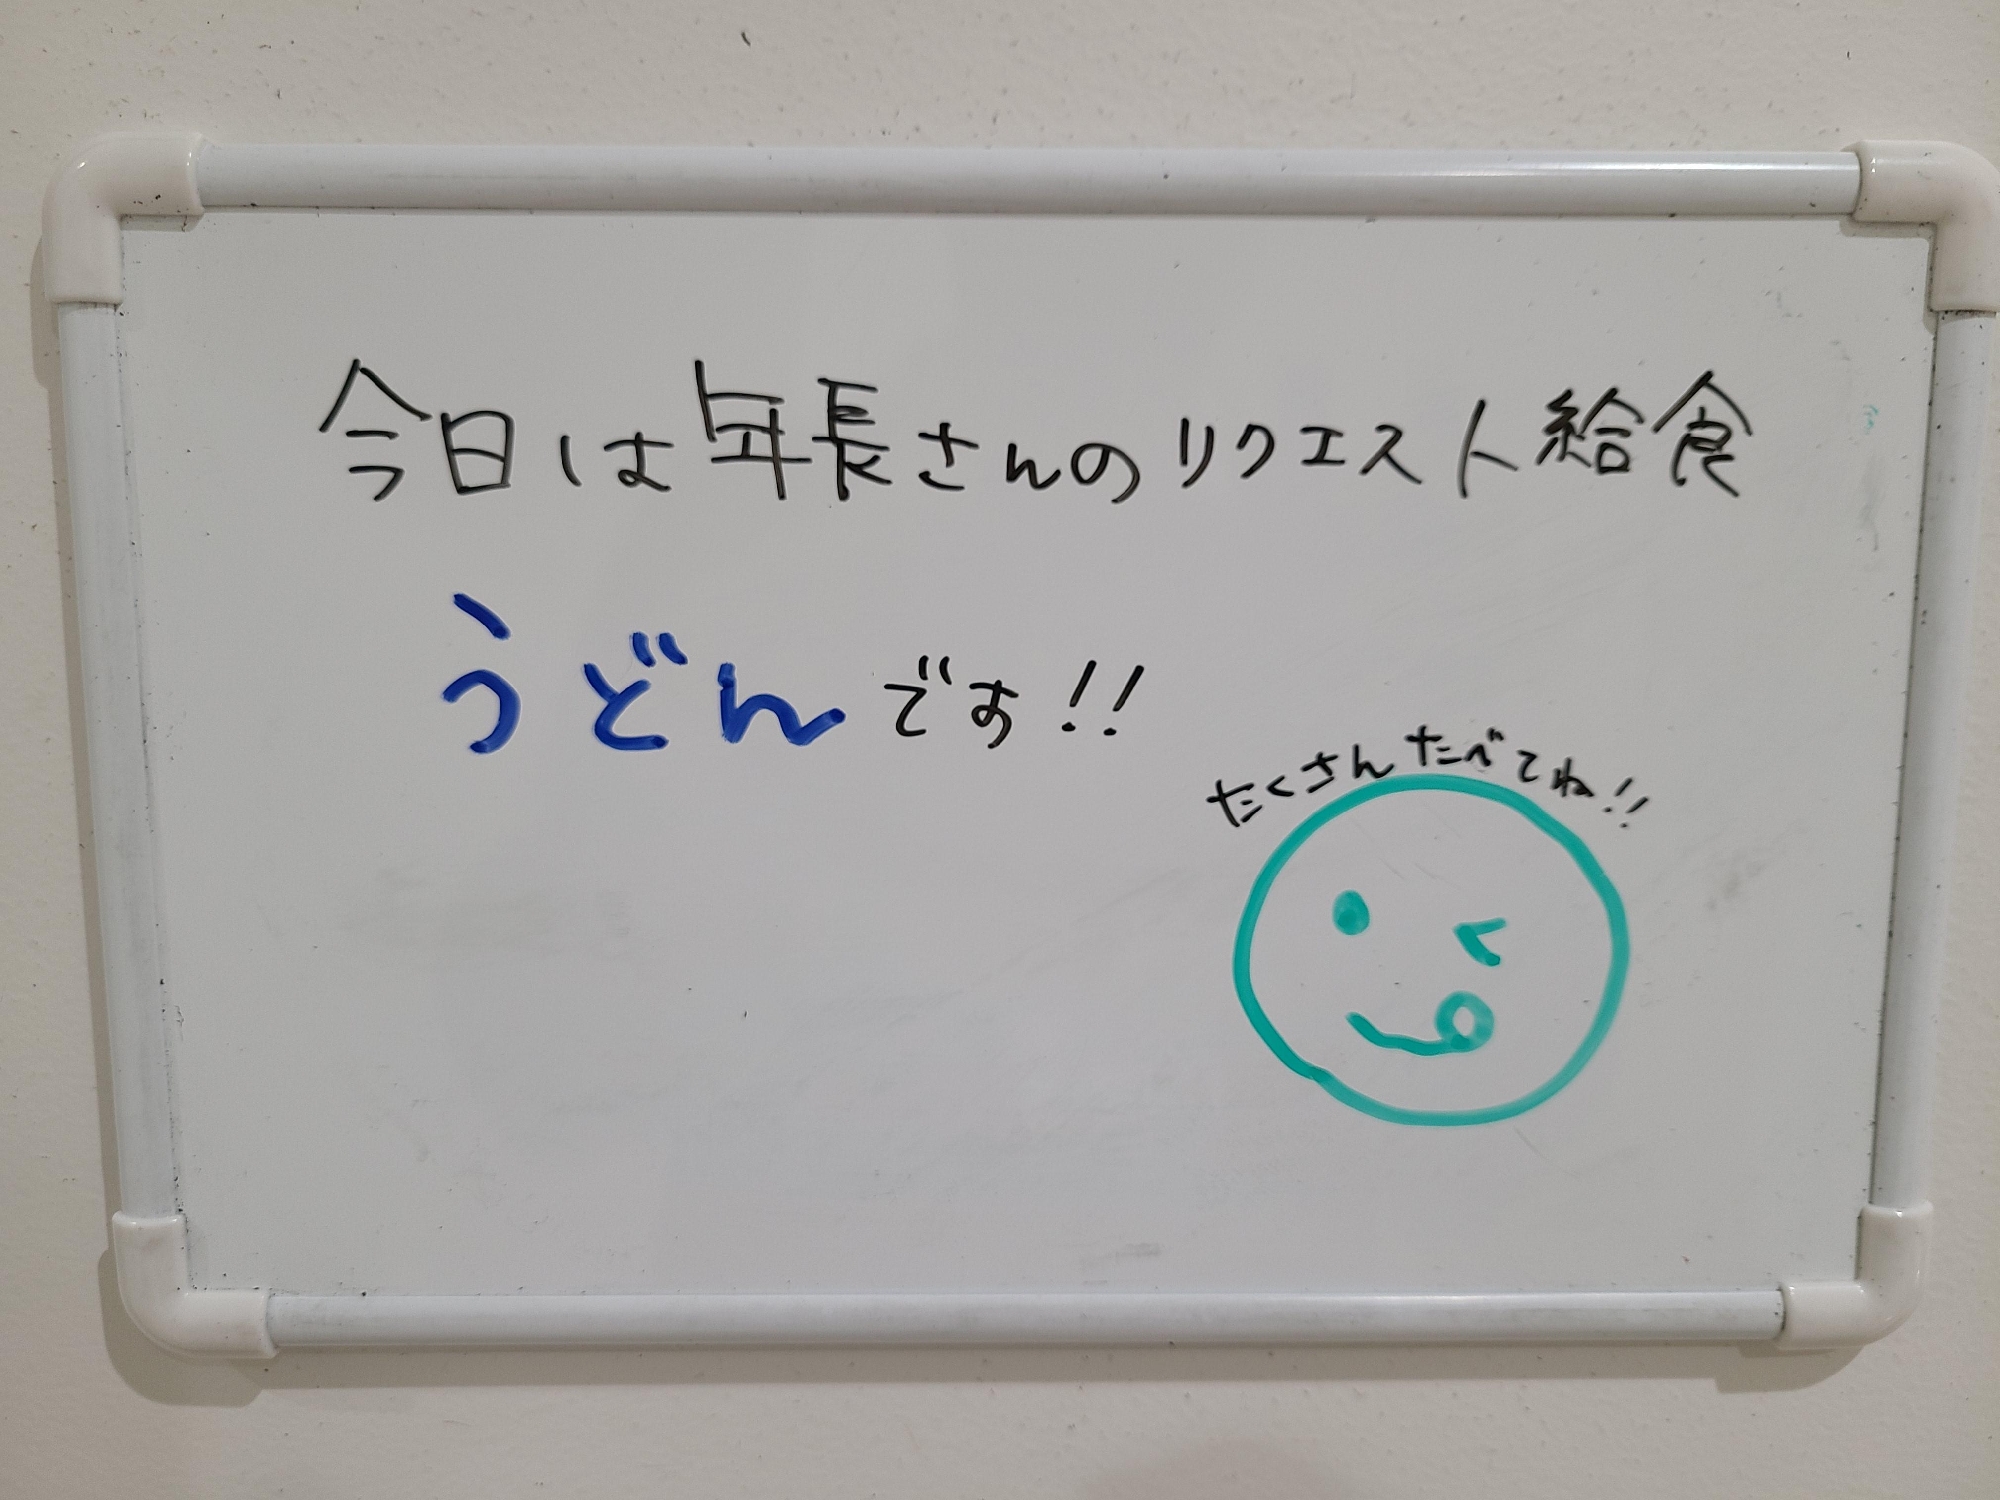 今日は年長さんのリクエスト給食
うどんです!!
たくさんたべてね!!